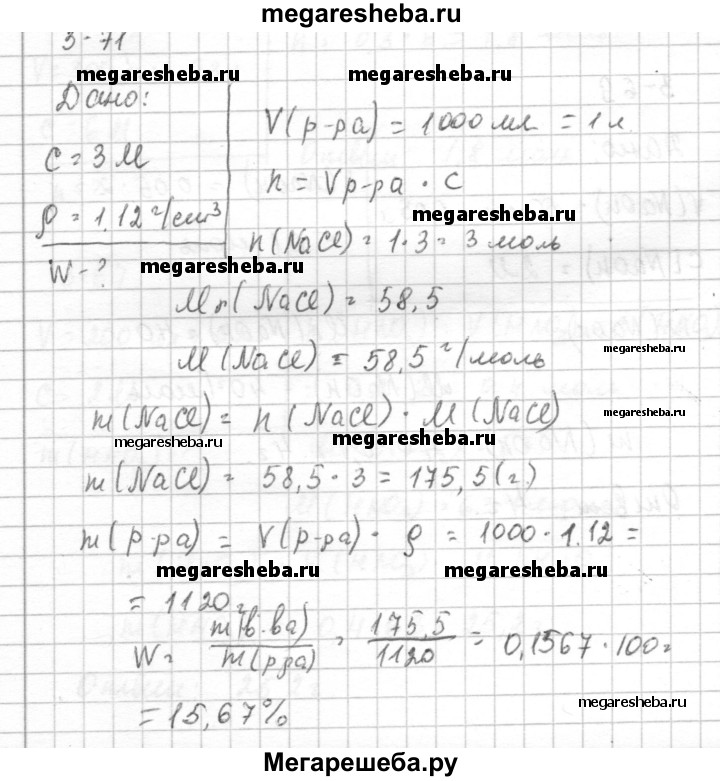 megaresheba.ru
3-71
megaresheba.ru megaresheba.ru
Дано:
V(р-ра) = 1000 мл = 1 л
C = 3 М
n = Vр-ра · C
ρ = 1.12 г/см³
megaresheba.ru
n(NaCl) = 1·3 = 3 моль
W - ?
megaresheba.ru
Mr(NaCl) = 58,5
M(NaCl) = 58,5 г/моль
megaresheba.ru
m(NaCl) = n(NaCl) · M(NaCl)
megaresheba.ru megaresheba.ru megaresheba.ru
m(NaCl) = 58,5 · 3 = 175,5 (г.)
m(р-ра) = V(р-ра) · ρ = 1000 · 1.12 =
megaresheba.ru megaresheba.ru
= 1120 г
W = m(в-ва) / m(р-ра) = 175,5 / 1120 = 0,1567 · 100 =
megaresheba.ru
= 15,67%
Мегарешеба.ру